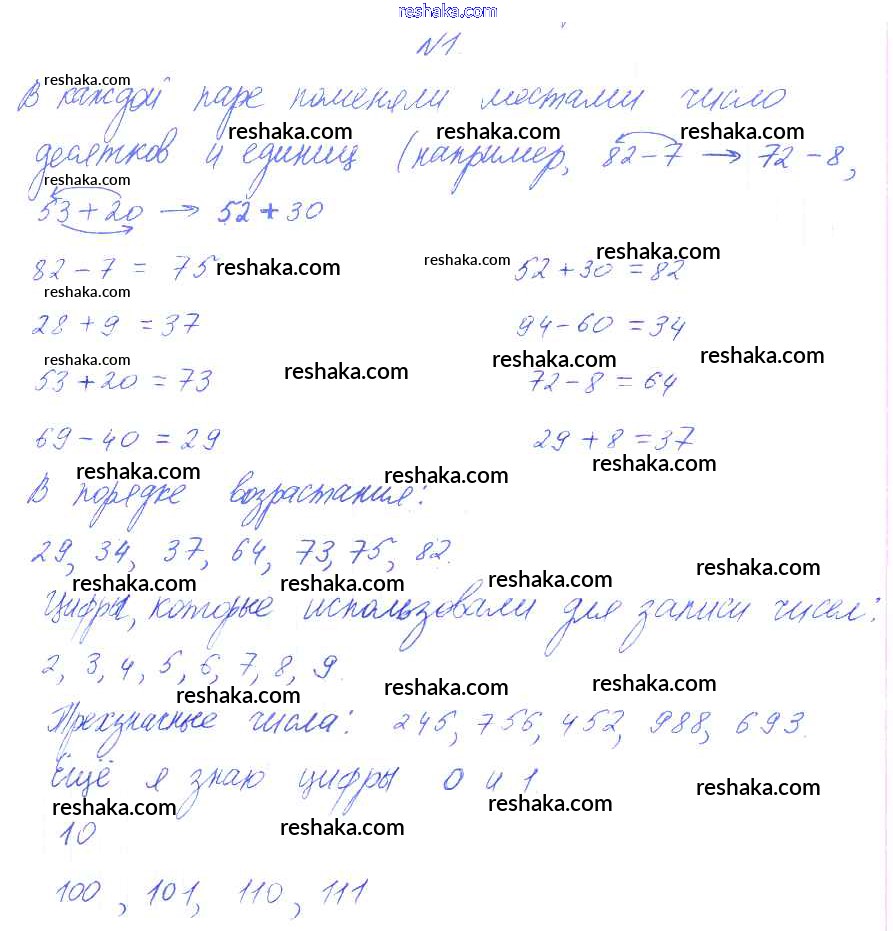 reshaka.com
N1.
reshaka.com
В каждой паре поменяли местами число
reshaka.com reshaka.com reshaka.com
десятков и единиц (например, 82-7 → 72-8,
reshaka.com
53+20 → 52+30
82-7 = 75 reshaka.com reshaka.com 52+30 = 82 reshaka.com
reshaka.com
28+9 = 37 94-60 = 34
reshaka.com reshaka.com reshaka.com reshaka.com
53+20 = 73 72-8 = 64
69-40 = 29 29+8 = 37
reshaka.com reshaka.com reshaka.com
В порядке возрастания:
29, 34, 37, 64, 73, 75, 82.
reshaka.com reshaka.com reshaka.com reshaka.com
Цифры, которые использовали для записи чисел:
2, 3, 4, 5, 6, 7, 8, 9.
reshaka.com reshaka.com reshaka.com
Трехзначные числа: 245, 756, 452, 988, 693.
Ещё я знаю цифры 0 и 1.
reshaka.com reshaka.com reshaka.com reshaka.com
10
100, 101, 110, 111